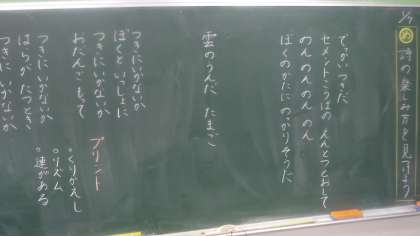 め 詩の楽しみ方を見つけよう
でっかいつきだ
セメントこうばの えんとつとおして
のん のん のん のん
ぼくのかたに のっかりそうだ
雲のうんだ たまご
つきに いかないか
ぼくと いっしょに
つきに いかないか
おだんご もって
プリント
。くりかえし
。リズム
。連がある
つきに いかないか
はらが たつとき
つきに いかないか